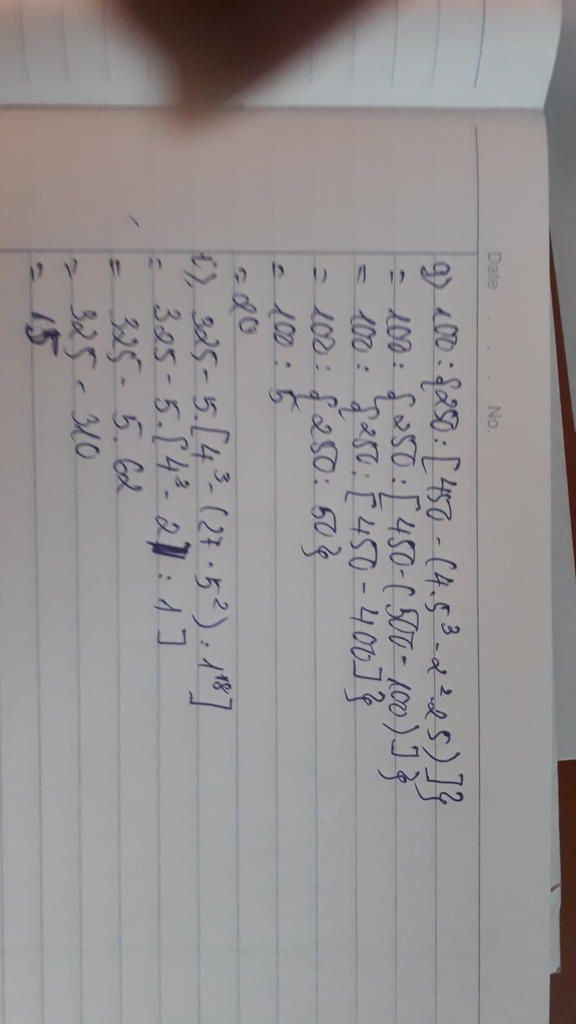 Date . . . No.
g) 100 : {250 : [450 - (4.5³ - 2².25)]}
= 100 : {250 : [450 - (500 - 100)]}
= 100 : {250 : [450 - 400]}
= 100 : {250 : 50}
= 100 : 5
= 20
i), 325 - 5.[4³ - (27 - 5²) : 1¹⁸]
= 325 - 5.[4³ - 2 : 1]
= 325 - 5.62
= 325 - 310
= 15